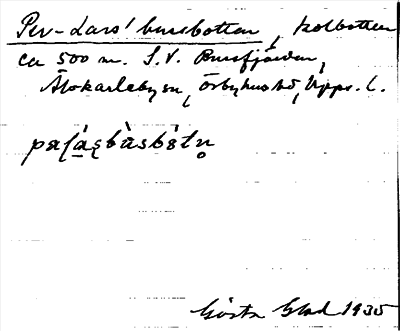 Per-Lars' bussbotten, kolbotten
ca 500 m. S.V. Bussfjärden,
Älvkarleby sn, Örbyhus hd, Upps. l.
Gösta Glad 1935